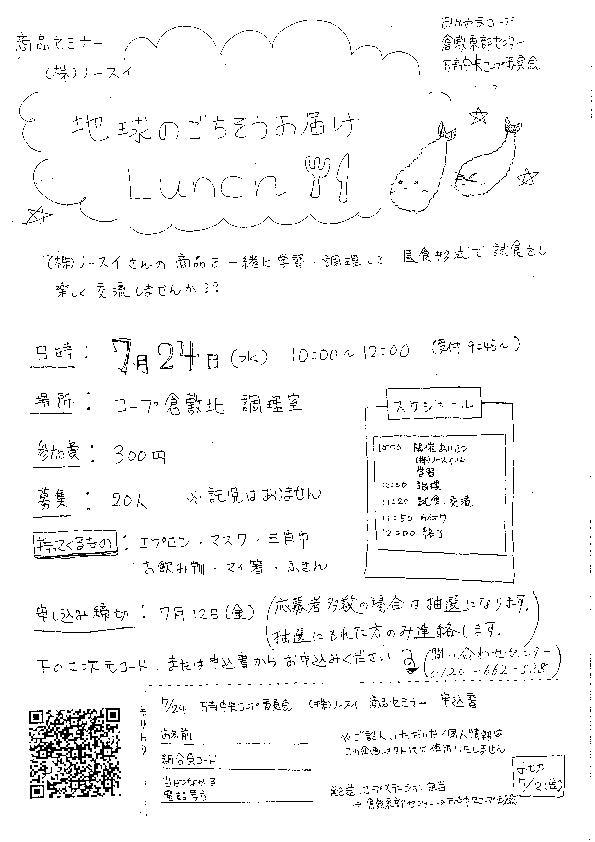 商品セミナー
(株)ノースイ
おかやまコープ
倉敷東部センター
地球のごちそうお届け
Lunch
(株)ノースイさんの商品を一緒に学習・調理して 昼食形式で試食をし
楽しく交流しませんか??
日時: 7月24日(水) 10:00~12:00 (受付 9:45~)
場所: コープ倉敷北 調理室
参加費: 300円
募集: 20人 ※託児はありません
持ってくるもの: エプロン・マスク・三角巾
お飲み物・マイ箸・ふきん
スケジュール
10:00 開催あいさつ
(株)ノースイより
学習
調理
11:20 試食・交流
11:50
12:00 終了
申し込み締切: 7月12日(金)
(応募者多数の場合は抽選になります。
抽選にもれた方のみ連絡します。)
下の二次元コード、または申込書からお申込みください
(問い合わせセンター
キリトリ
7/24 (株)ノースイ 商品セミナー 申込書
お名前
組合員コード
電話番号
※ご記入いただいた個人情報は
この企画以外では使用いたしません
7/12(金)